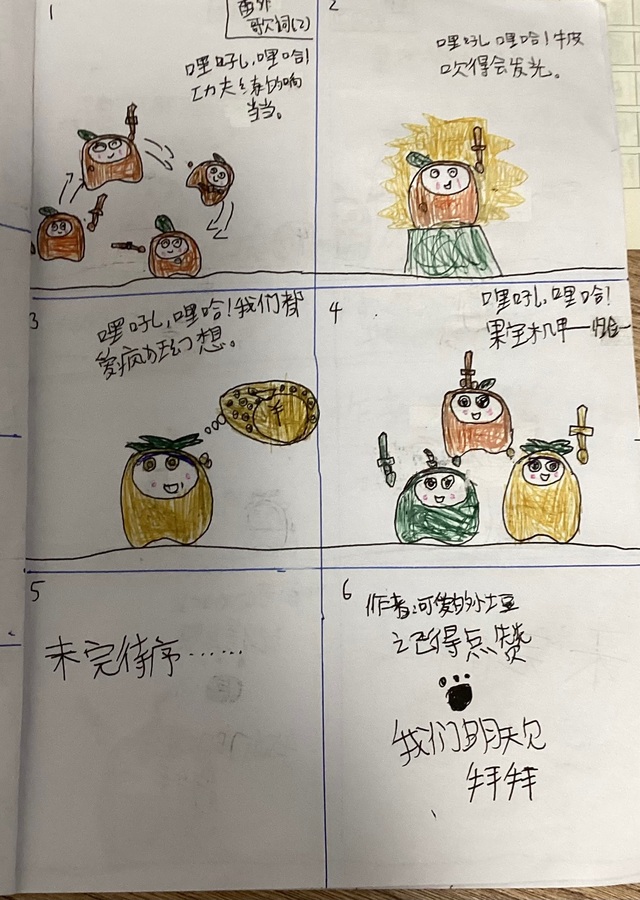 1
番外
歌词(2)
哩吼,哩哈!
功夫练的响
当当。
2
哩吼,哩哈!牛皮
吹得会发光。
3
哩吼,哩哈!我们都
爱疯狂幻想。
4
哩吼,哩哈!
果宝机甲一归一
5
未完待序……
6
作者:可爱的小土豆
记得点赞
我们明天见
拜拜